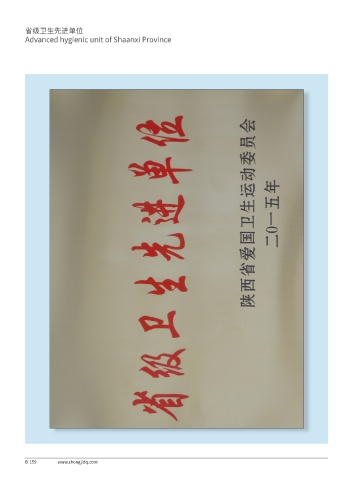 省级卫生先进单位
Advanced hygienic unit of Shaanxi Province
省级卫生先进单位
陕西省爱国卫生运动委员会
二0一五年
® 159 www.zhongjidq.com